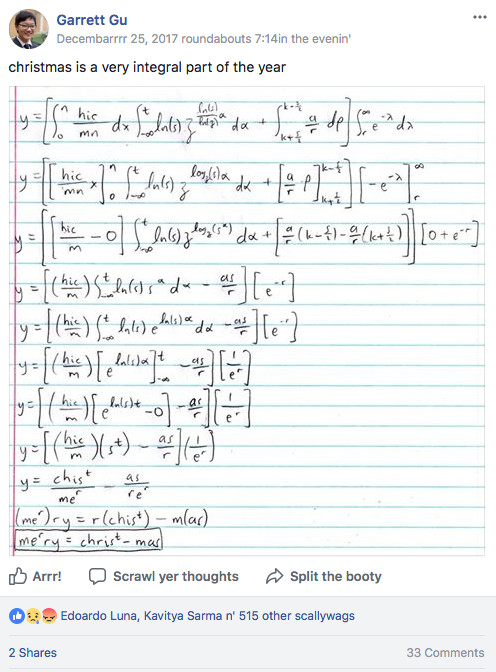 Garrett Gu
Decembarrrr 25, 2017 roundabouts 7:14in the evenin'
christmas is a very integral part of the year
y = [∫₀ⁿ hic/mn dx ∫₋∞ᵗ ln(s) z^(ln(s)/ln(z) α) dα + ∫_{k+s/2}^{k-s/2} a/r dp] ∫ᵣ^∞ e^-λ dλ
y = [[hic/mn x]₀ⁿ ∫₋∞ᵗ ln(s) z^(log_z(s)α) dα + [a/r p]_{k+s/2}^{k-s/2}] [-e^-λ]ᵣ^∞
y = [[hic/m - 0] ∫₋∞ᵗ ln(s) z^(log_z(s^α)) dα + [a/r (k - s/2) - a/r (k + s/2)]] [0 + e^-r]
y = [(hic/m) ∫₋∞ᵗ ln(s) s^α dα - as/r] [e^-r]
y = [(hic/m) ∫₋∞ᵗ ln(s) e^(ln(s)α) dα - as/r] [e^-r]
y = [(hic/m) [e^(ln(s)α)]₋∞ᵗ - as/r] [1/e^r]
y = [(hic/m) [e^(ln(s)t) - 0] - as/r] [1/e^r]
y = [(hic/m)(s^t) - as/r] (1/e^r)
y = chis^t/me^r - as/re^r
(me^r)ry = r(chis^t) - m(as)
me^r ry = chris^t - mas
Arrr! Scrawl yer thoughts Split the booty
Edoardo Luna, Kavitya Sarma n' 515 other scallywags
2 Shares 33 Comments